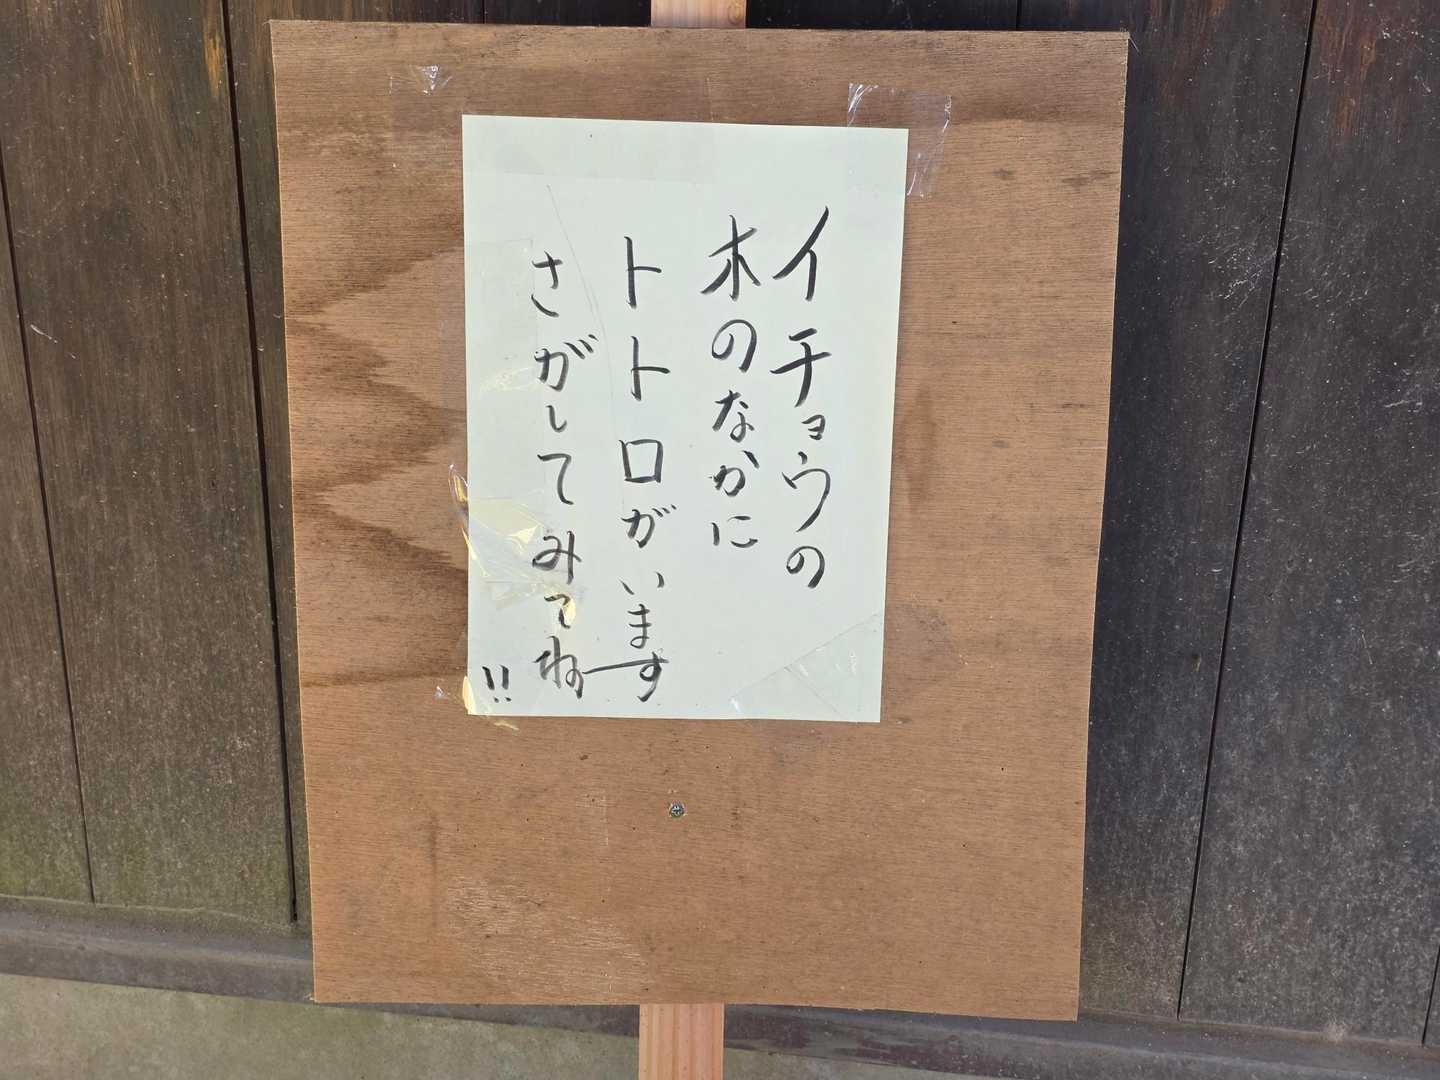 イチョウの
木のなかに
トトロがいます
さがしてみてね
!!